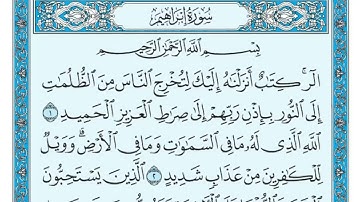 سُورَةُ إِبْرَاهِيمَ
بِسْمِ ٱللَّهِ ٱلرَّحْمَٰنِ ٱلرَّحِيمِ
الٓر ۚ كِتَٰبٌ أَنزَلْنَٰهُ إِلَيْكَ لِتُخْرِجَ ٱلنَّاسَ مِنَ ٱلظُّلُمَٰتِ
إِلَى ٱلنُّورِ بِإِذْنِ رَبِّهِمْ إِلَىٰ صِرَٰطِ ٱلْعَزِيزِ ٱلْحَمِيدِ ١
ٱللَّهِ ٱلَّذِى لَهُۥ مَا فِى ٱلسَّمَٰوَٰتِ وَمَا فِى ٱلْأَرْضِ ۗ وَوَيْلٌ
لِّلْكَٰفِرِينَ مِنْ عَذَابٍ شَدِيدٍ ٢ ٱلَّذِينَ يَسْتَحِبُّونَ